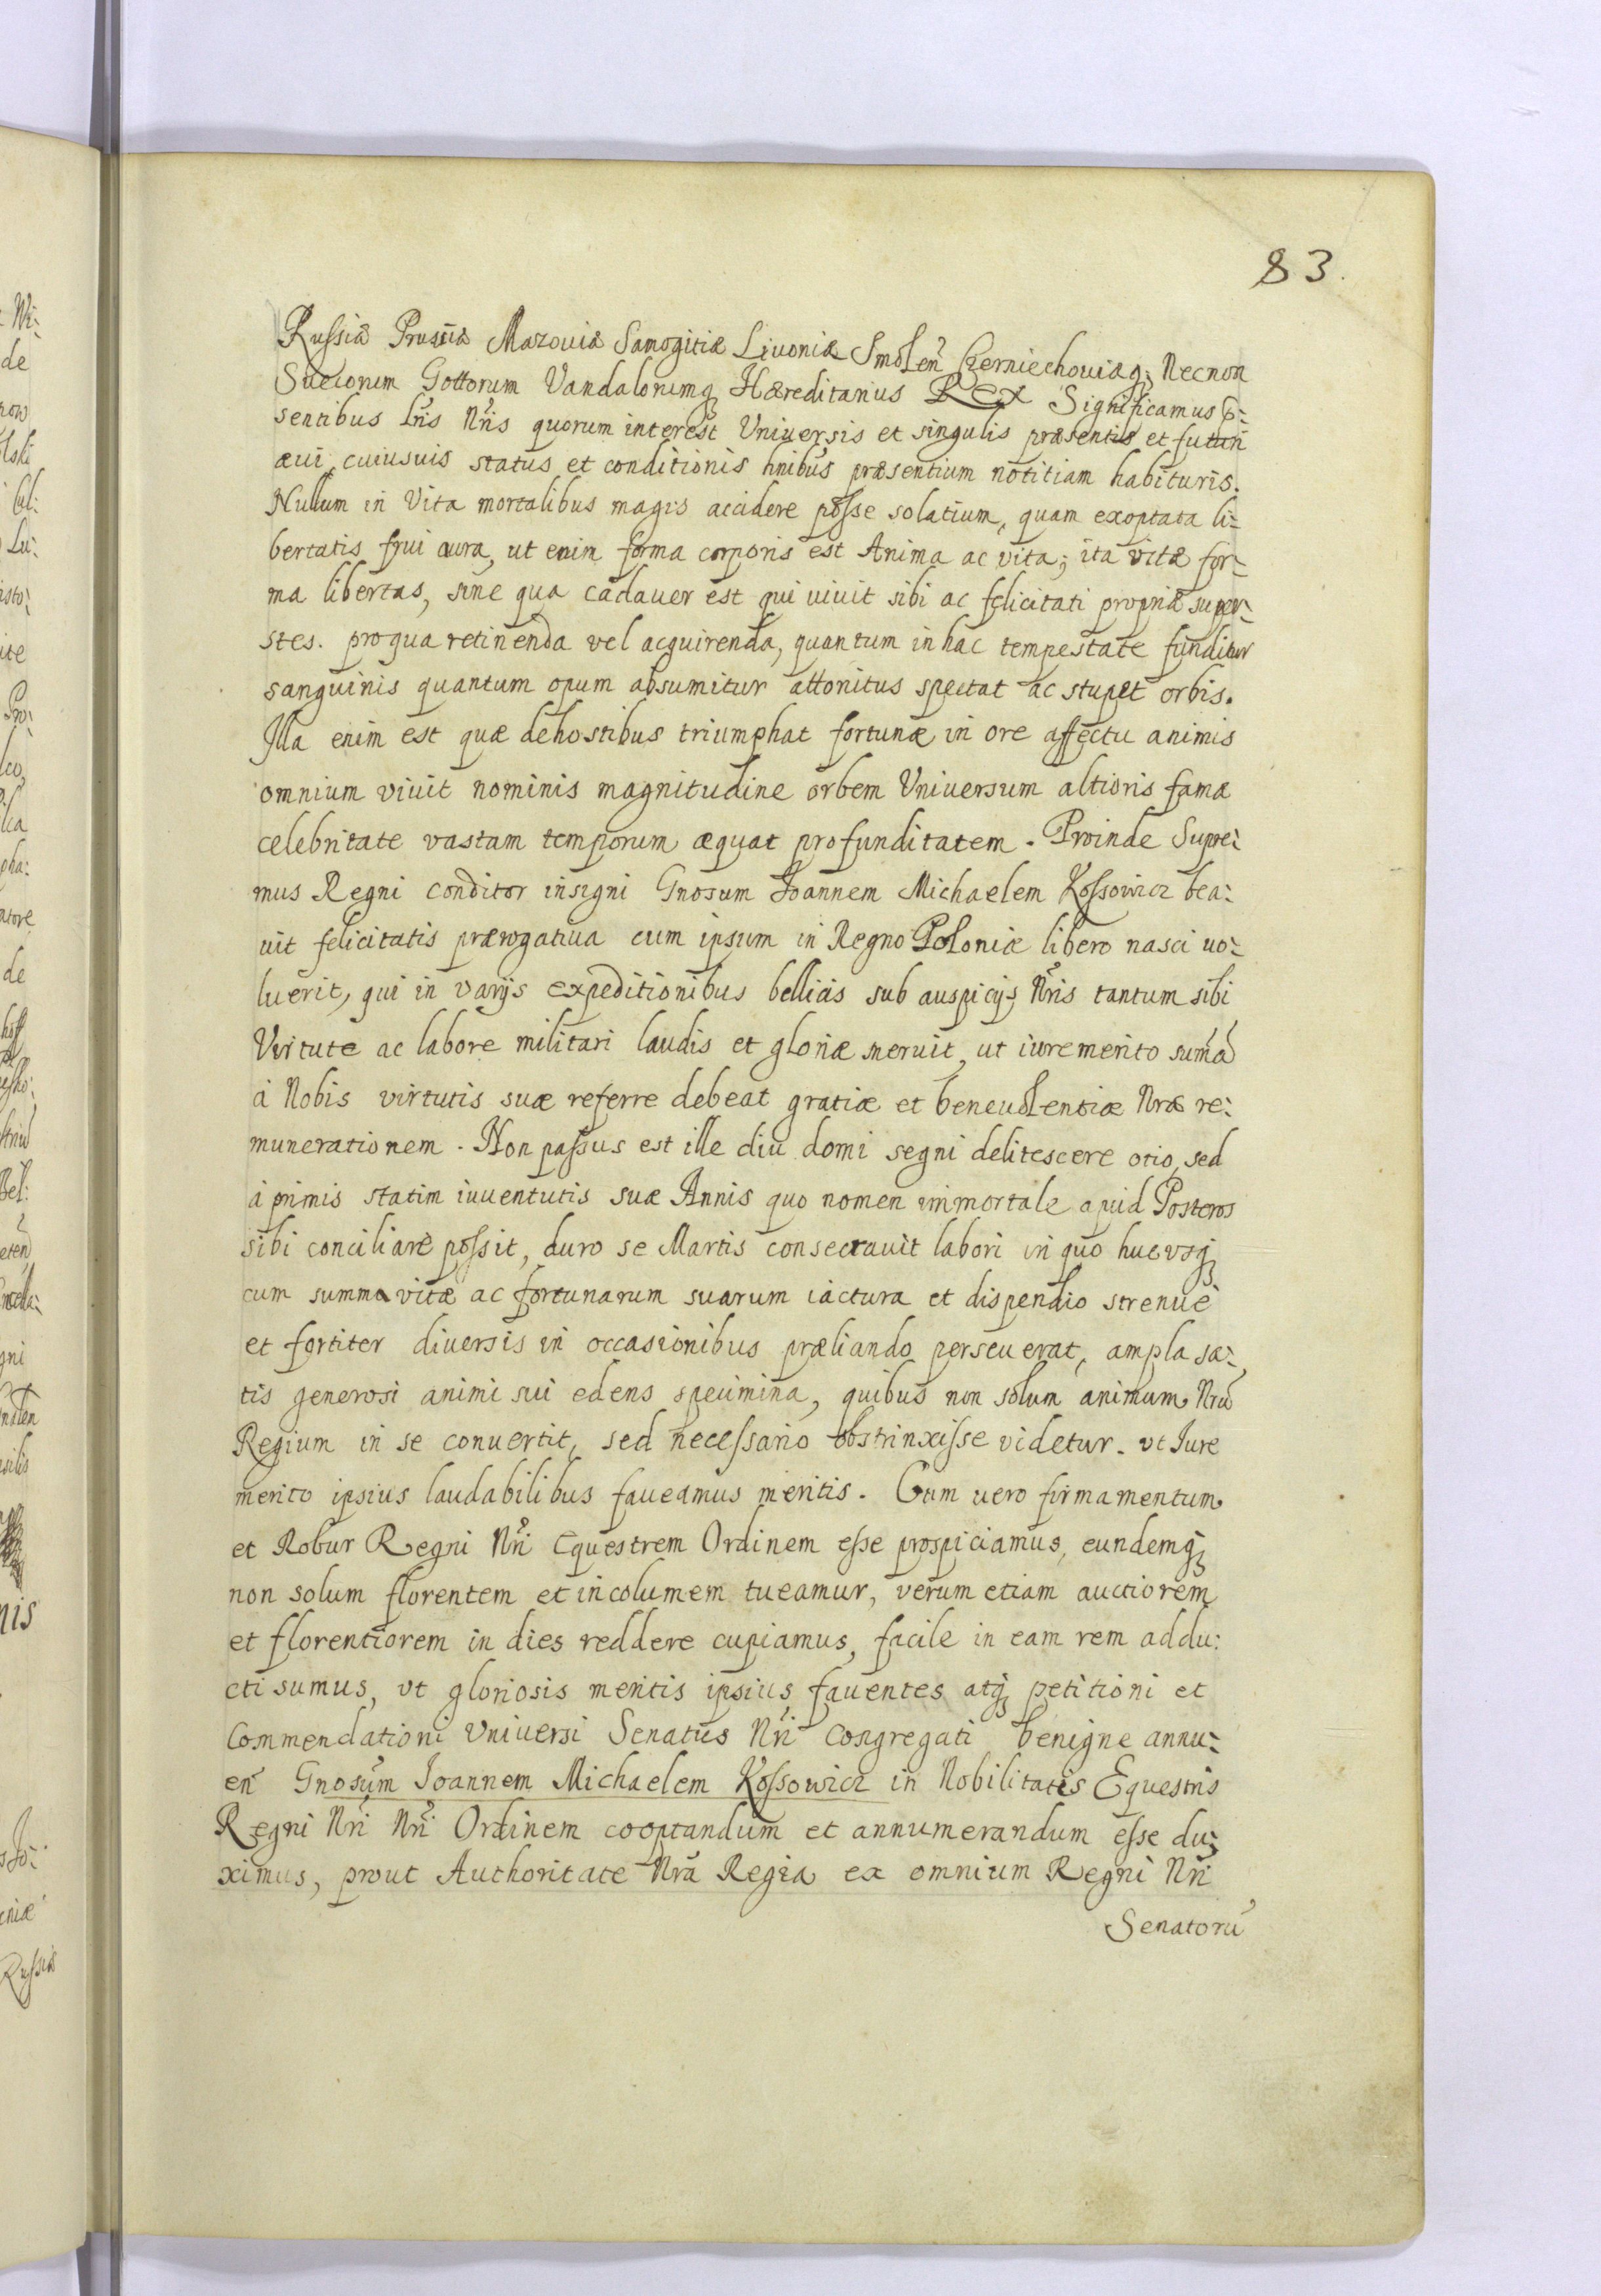 83.
Russiæ Prussiæ Mazouiæ Samogitiæ Liuoniæ Smolen̄ Czerniechouiæq; Necnon
Suecorum Gottorum Vandalorumq Hæreditarius Rex Significamus p̄-
sentibus Lr̄is Nr̄is quorum interest Vniuersis et singulis præsentis et futuri
æui, cuiusuis status et conditionis hn̄ibus præsentium notitiam habituris.
Nullum in Vita mortalibus magis accidere posse solatium, quam exoptata li-
bertatis frui aura, ut enim forma corporis est Anima ac vita; ita vitæ for-
ma libertas, sine qua cadauer est qui viuit sibi ac felicitati propriæ super-
stes. pro qua retinenda vel acquirenda, quantum in hac tempestate funditur
sanguinis quantum opum absumitur attonitus spectat ac stupet orbis.
Illa enim est quæ de hostibus triumphat fortunæ in ore affectu animis
omnium viuit nominis magnitudine orbem Vniuersum altioris famæ
celebritate vastam temporum æquat profunditatem. Proinde Supre-
mus Regni conditor insigni Gnosum Joannem Michaelem Kossowicz bea-
uit felicitatis prærogatiua cum ipsum in Regno Poloniæ libero nasci uo-
luerit, qui in varijs expeditionibus bellicis sub auspicijs Nr̄is tantum sibi
Virtute ac labore militari laudis et gloriæ meruit, ut iure merito sum̄ā
à Nobis virtutis suæ referre debeat gratiæ et beneuolentiæ Nræ re-
munerationem. Non passus est ille diu domi segni delitescere otio, sed
à primis statim iuuentutis suæ Annis quo nomen immortale apud Posteros
sibi conciliare possit, duro se Martis consecrauit labori in quo hucvsq
cum summa vitæ ac fortunarum suarum iactura et dispendio strenuè
et fortiter diuersis in occasionibus præliando perseuerat, ampla sa-
tis generosi animi sui edens specimina, quibus non solum animum Nrū
Regium in se conuertit, sed necessario obstrinxisse videtur. vt Jure
merito ipsius laudabilibus faueamus meritis. Cum uero firmamentum
et Robur Regni Nr̄i Equestrem Ordinem esse prospiciamus, eundemq
non solum florentem et incolumem tueamur, verum etiam auctiorem
et florentiorem in dies reddere cupiamus, facile in eam rem addu-
cti sumus, vt gloriosis meritis ipsius fauentes atq petitioni et
Commendationi Vniuersi Senatus Nr̄i Congregati benigne annu-
en̄ Gnosum Joannem Michaelem Kossowicz in Nobilitatis Equestris
Regni Nr̄i Nr̄i Ordinem cooptandum et annumerandum esse du-
ximus, prout Authoritate Nrā Regia ex omnium Regni Nr̄i
Senatorū